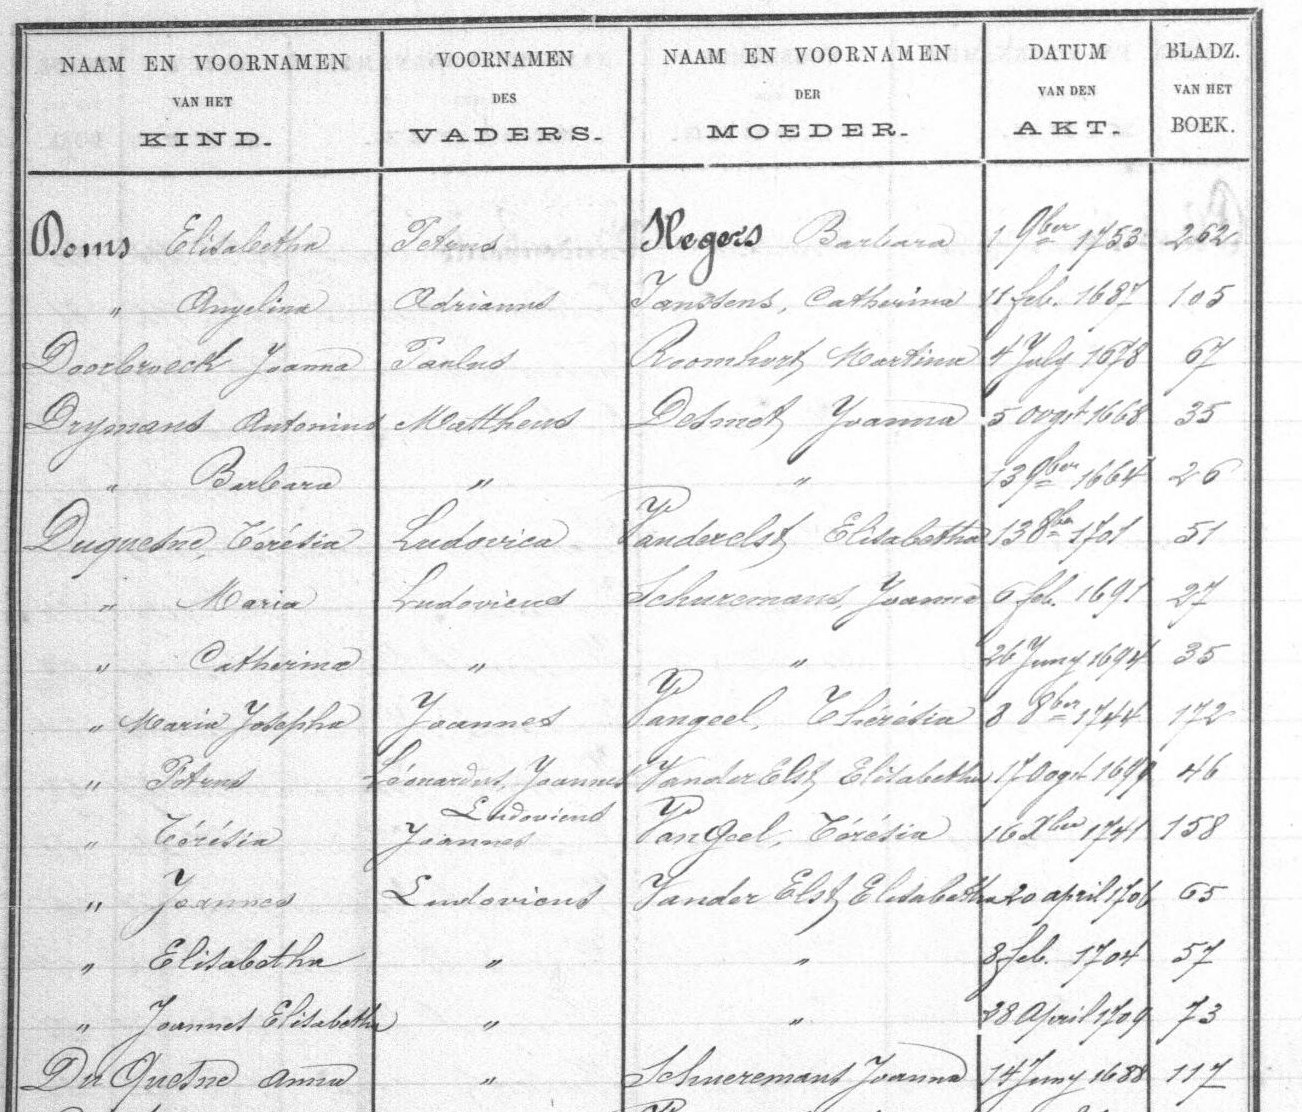 NAAM EN VOORNAMEN VAN HET KIND. VOORNAMEN DES VADERS. NAAM EN VOORNAMEN DER MOEDER. DATUM VAN DEN AKT. BLADZ. VAN HET BOEK.
Doms Elisabetha Petrus Hegers Barbara 1 9ber 1753 262
" Angelina Adrianus Janssens, Catherina 11 feb. 1687 105
Doorbroeck Joanna Paulus Roomhort Martina 4 July 1678 67
Drymans Antonius Mattheus Desmet Joanna 5 oogst 1668 35
" Barbara " " 13 9ber 1664 26
Duquesne, Térésia Ludovica Vanderelst Elisabetha 13 8ber 1701 51
" Maria Ludovicus Schuremans, Joanna 6 feb. 1691 27
" Catherina " " 26 Juny 1694 35
" Maria Josepha Joannes Vangeel, Thérésia 8 8ber 1744 172
" Petrus Léonardus, Joannes Ludovicus VanderElst Elisabetha 17 oogst 1699 46
" Térésia Joannes VanGeel, Térésia 16 Xber 1741 158
" Joannes Ludovicus Vander Elst Elisabetha 20 april 1706 65
" Elisabetha " " 8 feb. 1704 57
" Joannes Elisabetha " " 28 April 1709 73
Du Quesne Anna " Schueremans Joanna 14 Juny 1688 117